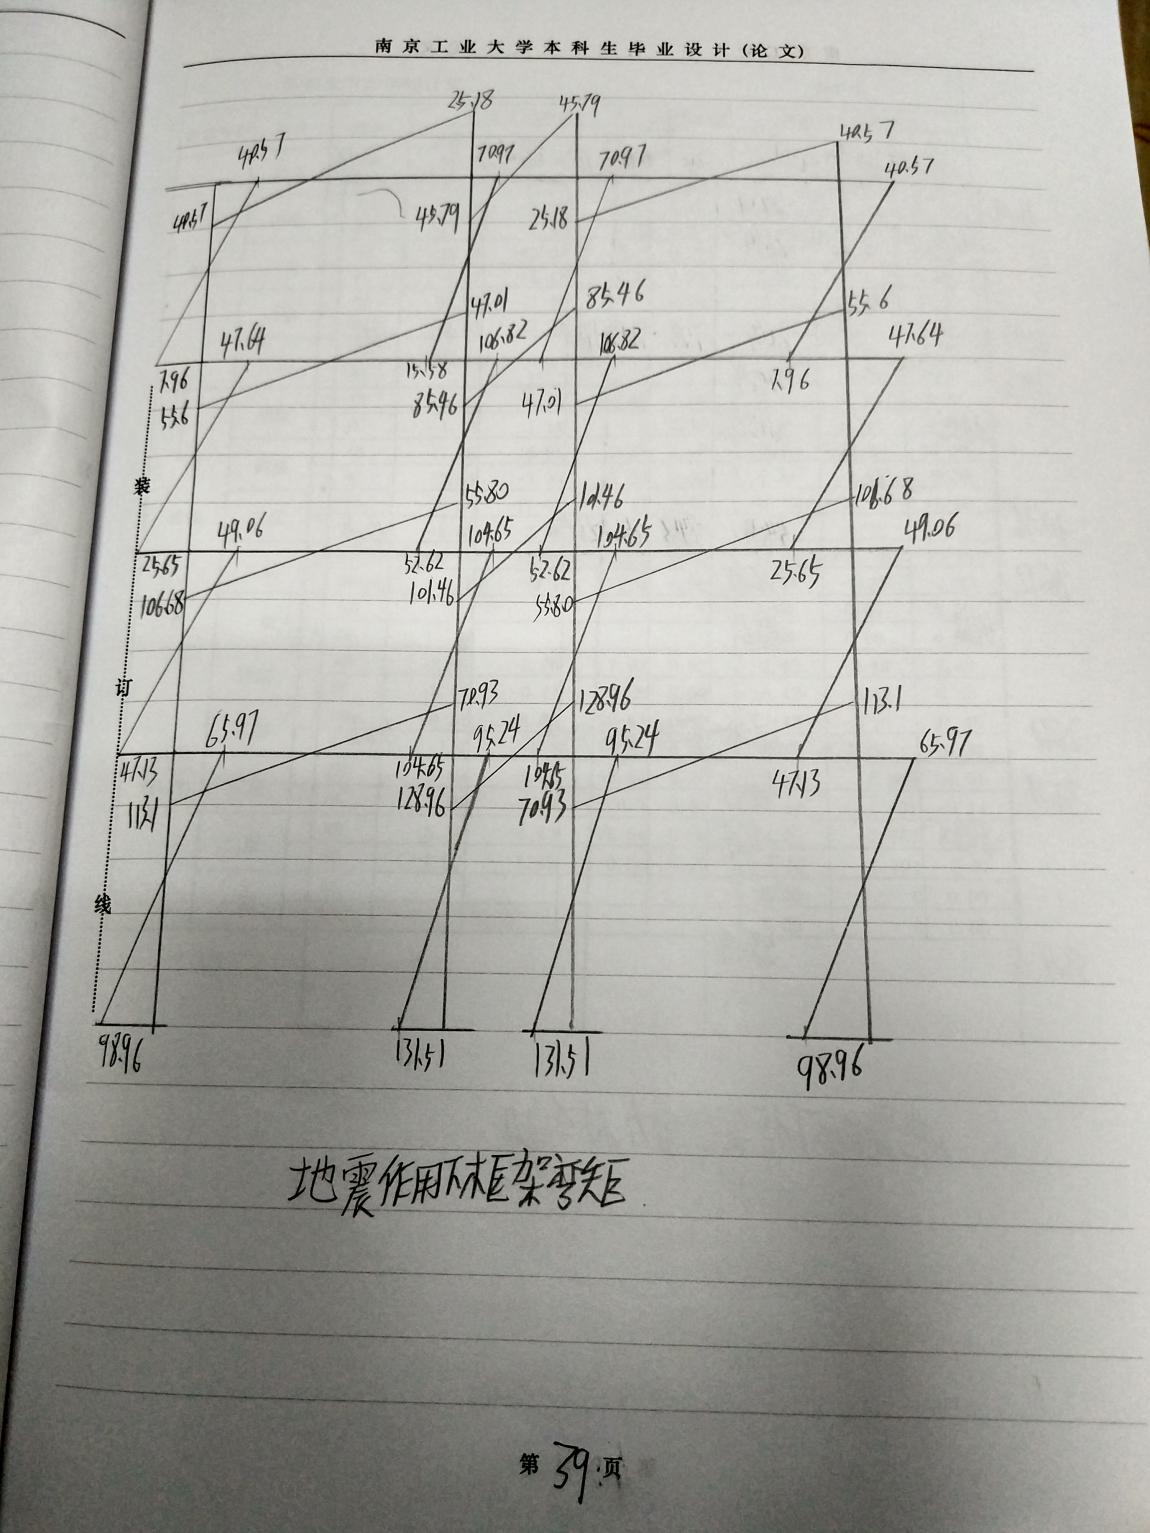 南京工业大学本科生毕业设计(论文)
25.18 45.79
40.57 70.97 70.97 40.57
40.57
40.57 45.79 25.18
47.01 85.46 55.6
47.64 106.82 106.82 47.64
7.96 15.58 7.96
55.6 85.46 47.01
装
55.80 101.46 106.68
49.06 104.65 104.65 49.06
25.65 52.62 52.62 25.65
106.68 101.46 55.80
订
70.93 128.96 113.1
65.97 95.24 95.24 65.97
47.13 104.65 104.65 47.13
113.1 128.96 70.93
线
98.96 131.51 131.51 98.96
地震作用下框架弯矩
第39页